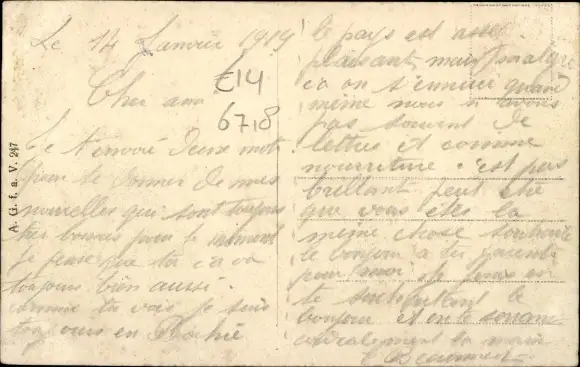 Le 14 Janvier 1919
Cher ami
£14
6718
Je t'envoie deux mot
pour te donner de mes
nouvelles qui sont toujours
très bonnes pour le moment
je pense que toi ca va
toujours bien aussi.
comme tu vois je suis
toujours en
A. G. f. a. V. 247
le pays est assez
plaisant, mais malgré
ca on s'ennuie quand
même nous n'avons
pas souvent de
lettres et comme
nourriture c'est pas
brillant peut etre
que vous êtes la
même chose souhaite
le bonjour a tes parents
pour moi
te souhaitant le
bonjour et en te serrant
cordialement la main